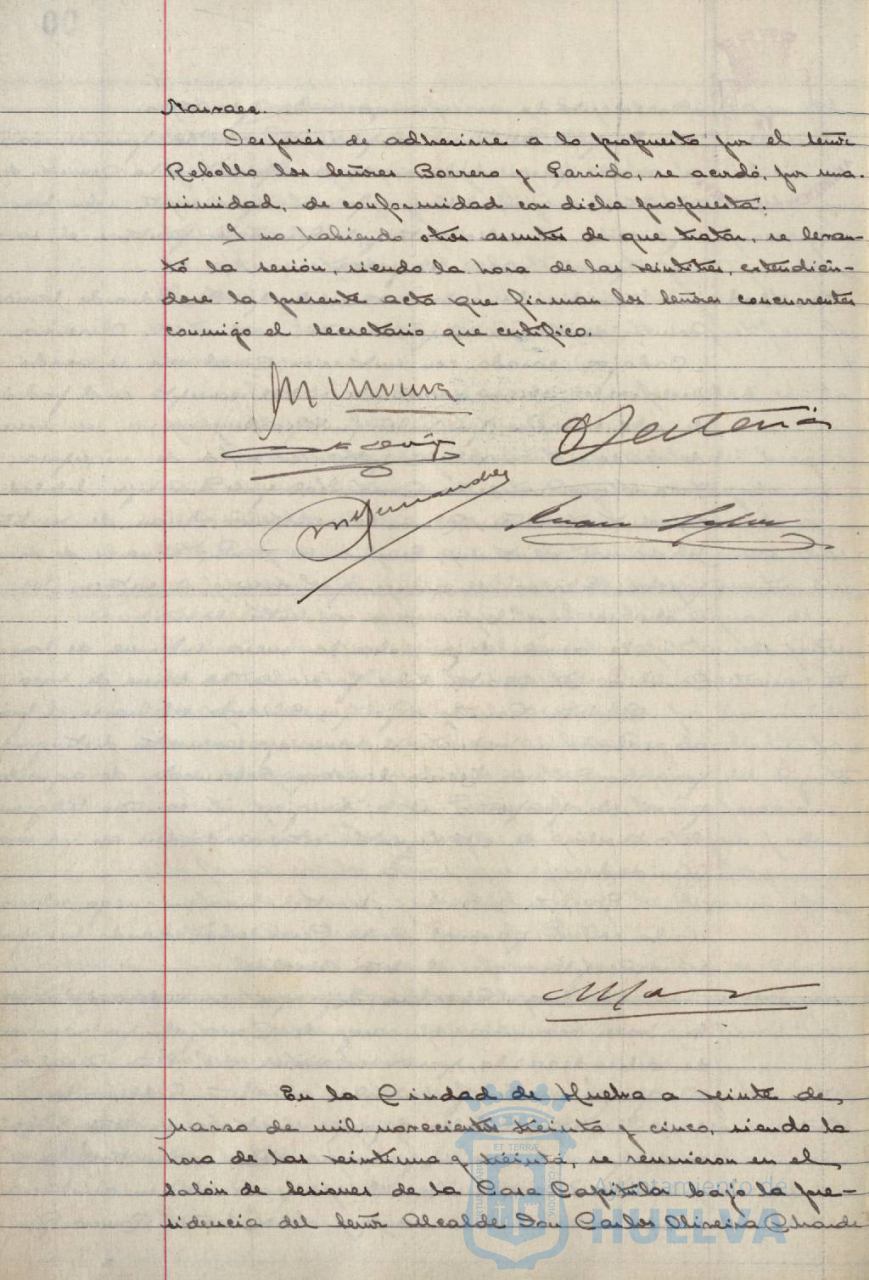 Narvaez.
Después de adherirse a lo propuesto por el señor
Rebollo los señores Borrero y Garrido, se acordó, por una-
nimidad, de conformidad con dicha propuesta.
Y no habiendo otros asuntos de que tratar, se levan-
tó la sesión, siendo la hora de las veintitres, extendién-
dose la presente acta que firman los señores concurrentes
conmigo el secretario que certifico.
En la Ciudad de Huelva a veinte de
Marzo de mil novecientos treinta y cinco, siendo la
hora de las veintiuna y treinta, se reunieron en el
salón de sesiones de la Casa Capitular bajo la pre-
sidencia del señor Alcalde Don Carlos Oliveira Chardi
Ayuntamiento de
HUELVA